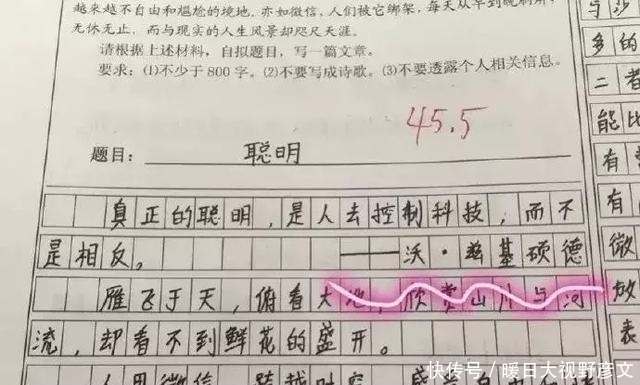 越来越不自由和尴尬的境地。亦如微信，人们被它绑架，每天从早到晚刷屏，
无休无止，而与现实的人生风景却咫尺天涯。
请根据上述材料，自拟题目，写一篇文章。
要求：(1)不少于800字。(2)不要写成诗歌。(3)不要透露个人相关信息。
45.5
题目： 聪明
真正的聪明，是人去控制科技，而不
是相反。 ——沃·兹基硕德
雁飞于天，俯看大地，欣赏山川与河
流，却看不到鲜花的盛开。
人用微信，跨越时空
与沙
多的
二者
能比
有
有
微
放
表
快传号／暖日大视野彦文